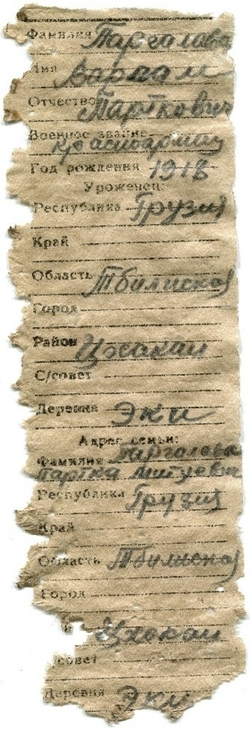 Фамилия Паргалава
Имя Варлам
Отчество Парткович
Военное звание
красноармеец
Год рождения 1918
Уроженец:
Республика Грузия
Край
Область Тбилиской
Город
Район Цхакаи
С/совет
Деревня Эки
Адрес семьи:
Фамилия Паргалава
Республика Грузия
Край
Область Тбилиской
Город
Цхокаи
совет
Деревня Эки